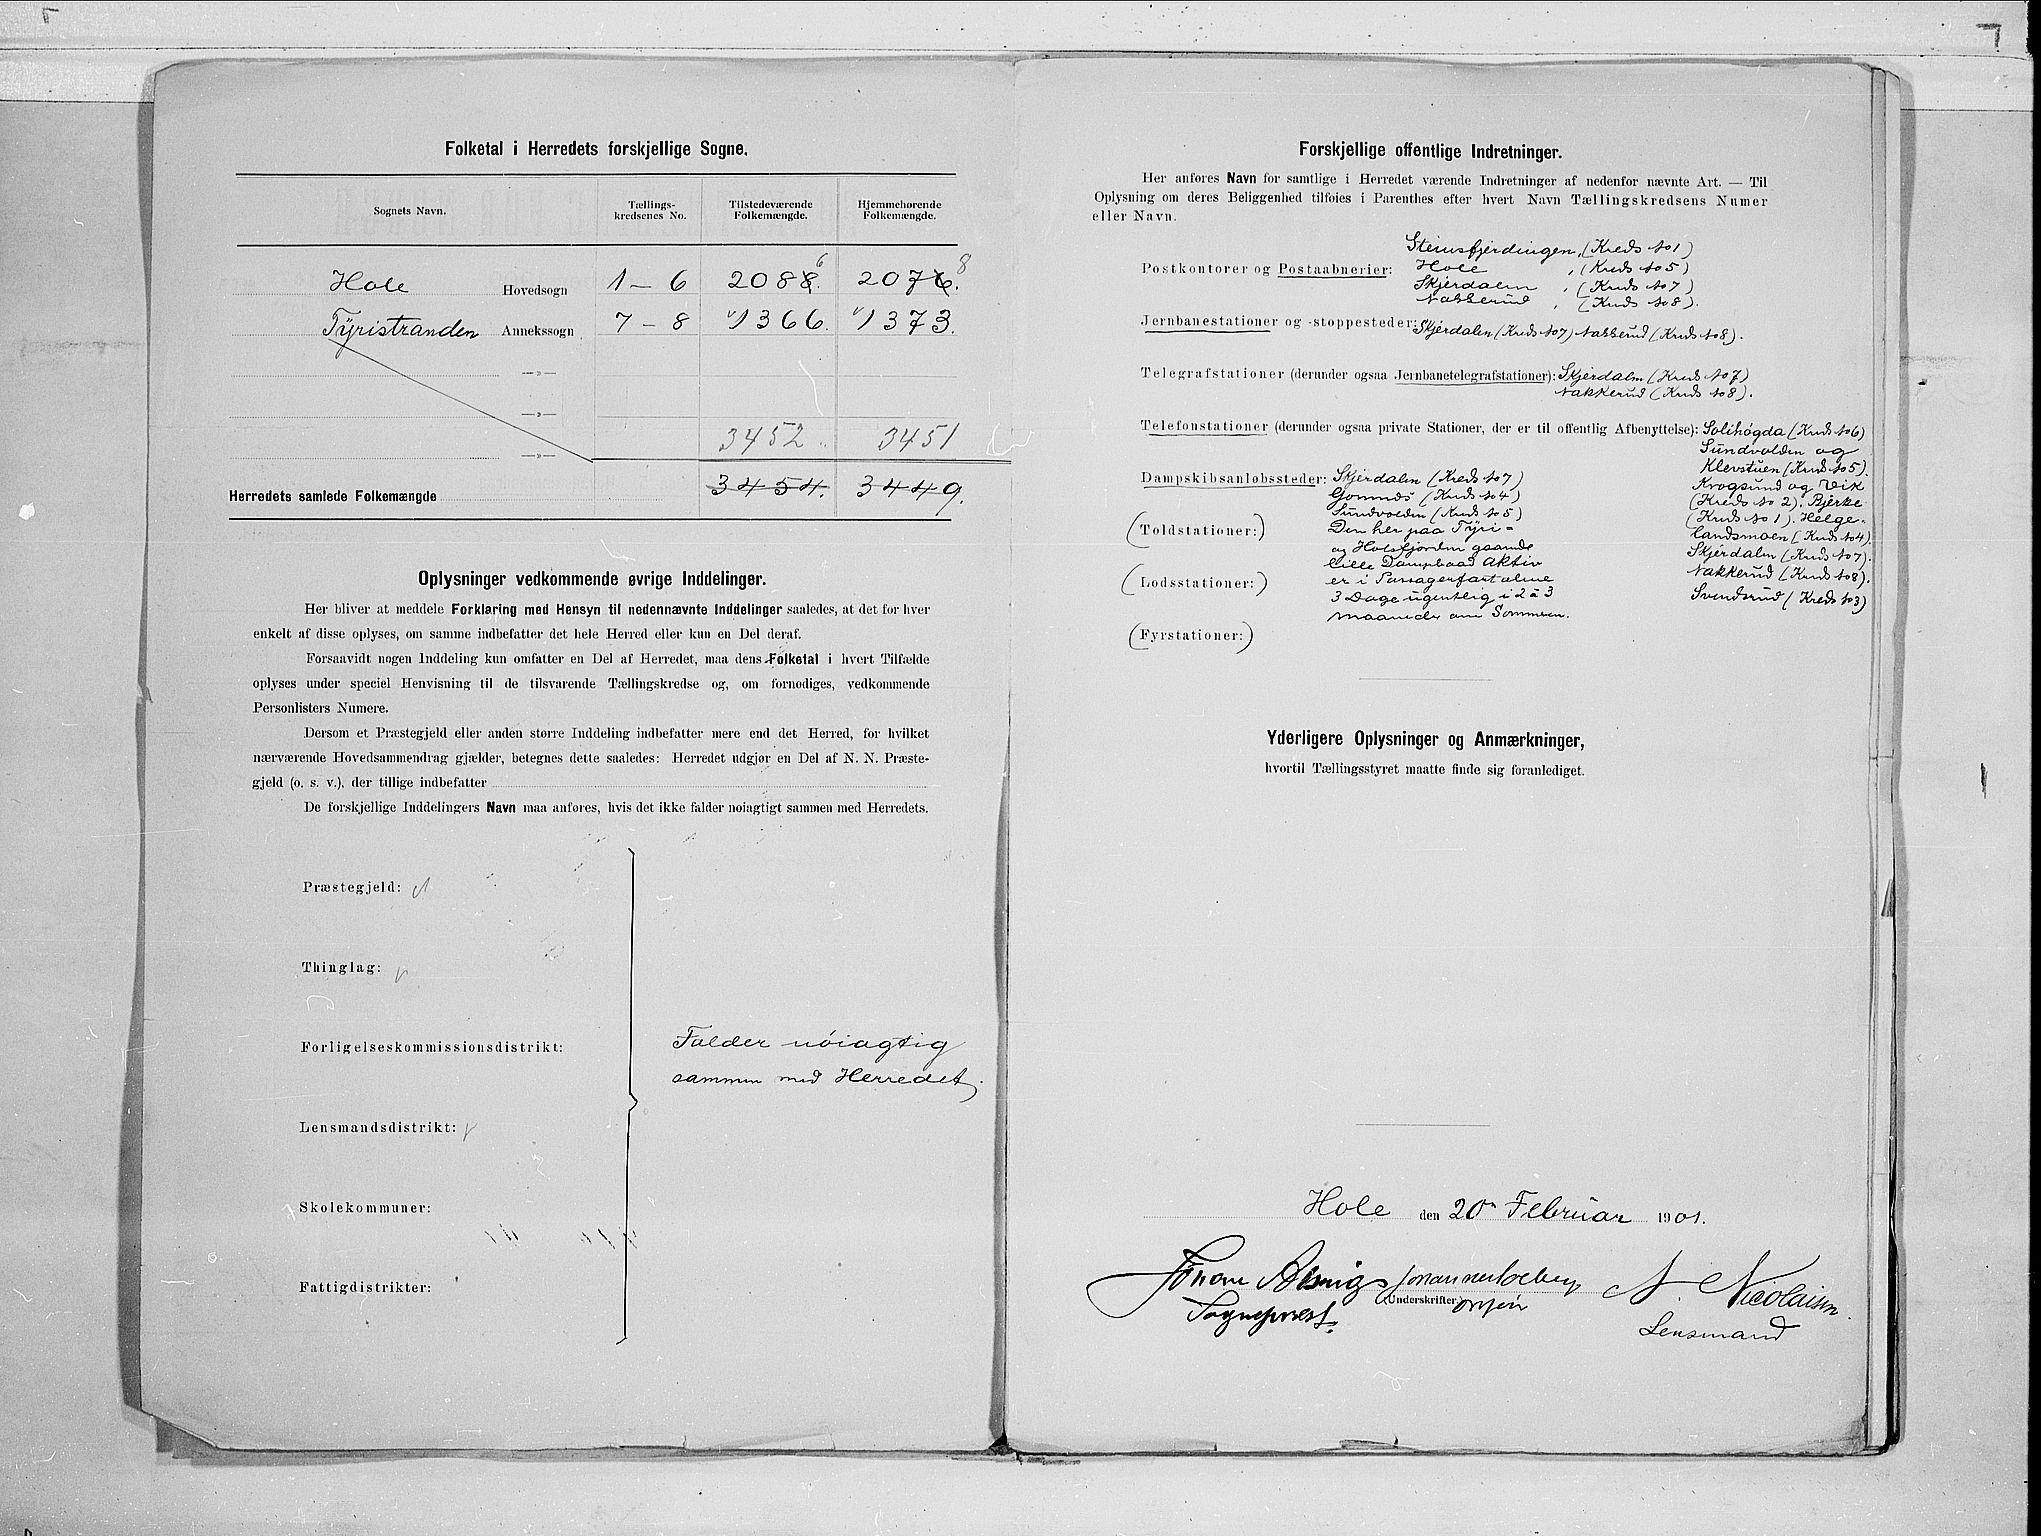 Folketal i Herredets forskjellige Sogne.
Sognets Navn.
Tællings-
kredsenes No.
Tilstedeværende
Folkemængde.
Hjemmehørende
Folkemængde.
6 8
Hole Hovedsogn 1 – 6 2088. 2076.
Tyristranden Annekssogn 7 – 8 1366. 1373.
—„—
—„—
3452 3451
—„—
Herredets samlede Folkemængde 3454. 3449.
Oplysninger vedkommende øvrige Inddelinger.
Her bliver at meddele Forklaring med Hensyn til nedennævnte Inddelinger saaledes, at det for hver
enkelt af disse oplyses, om samme indbefatter det hele Herred eller kun en Del deraf.
Forsaavidt nogen Inddeling kun omfatter en Del af Herredet, maa dens Folketal i hvert Tilfælde
oplyses under speciel Henvisning til de tilsvarende Tællingskredse og, om fornødiges, vedkommende
Personlisters Numere.
Dersom et Præstegjeld eller anden større Inddeling indbefatter mere end det Herred, for hvilket
nærværende Hovedsammendrag gjælder, betegnes dette saaledes: Herredet udgjør en Del af N. N. Præste-
gjeld (o. s. v.), der tillige indbefatter
De forskjellige Inddelingers Navn maa anføres, hvis det ikke falder nøiagtigt sammen med Herredets.
Præstegjeld:
Thinglag:
Forligelseskommissionsdistrikt:
Falder nöiagtig
sammen med Herredet.
Lensmandsdistrikt:
Skolekommuner:
Fattigdistrikter:
Forskjellige offentlige Indretninger.
Her anføres Navn for samtlige i Herredet værende Indretninger af nedenfor nævnte Art. — Til
Oplysning om deres Beliggenhed tilføies i Parenthes efter hvert Navn Tællingskredsens Numer
eller Navn.
Postkontorer og Postaabnerier:
Steinsfjerdingen, (Kreds No 1)
Hole, (Kreds No 5)
Skjerdalen, (Kreds No 7)
Nakkerud, (Kreds No 8).
Jernbanestationer og -stoppesteder: Skjerdalen (Kreds No 7) Nakkerud (Kreds No 8).
Telegrafstationer (derunder ogsaa Jernbanetelegrafstationer): Skjerdalen (Kreds No 7)
Nakkerud (Kreds No 8).
Telefonstationer (derunder ogsaa private Stationer, der er til offentlig Afbenyttelse): Solihögda (Kreds No 6)
Sundvolden og
Klevstuen (Kreds No 5).
Krogsund og Vik
(Kreds No 2). Bjerke
(Kreds No 1). Helge-
landsmoen (Kreds No 4).
Skjerdalen (Kreds No 7).
Nakkerud (Kreds No 8).
Svendsrud (Kreds No 3)
Dampskibsanløbssteder: Skjerdalen (Kreds No 7)
Gomnæs (Kreds No 4)
Sundvolden (Kreds No 5)
(Toldstationer:)
Den her paa Tyri-
og Holsfjorden gaaende
lille Dampbaad Aktiv
(Lodsstationer:)
er i Passagerfart alene
3 Dage ugentlig i 2 à 3
maaneder om Sommeren.
(Fyrstationer:)
Yderligere Oplysninger og Anmærkninger,
hvortil Tællingsstyret maatte finde sig foranlediget.
Hole den 20de Februar 1901.
N. Nicolaisen
(Underskrifter)
Sogneprest.
Lensmand